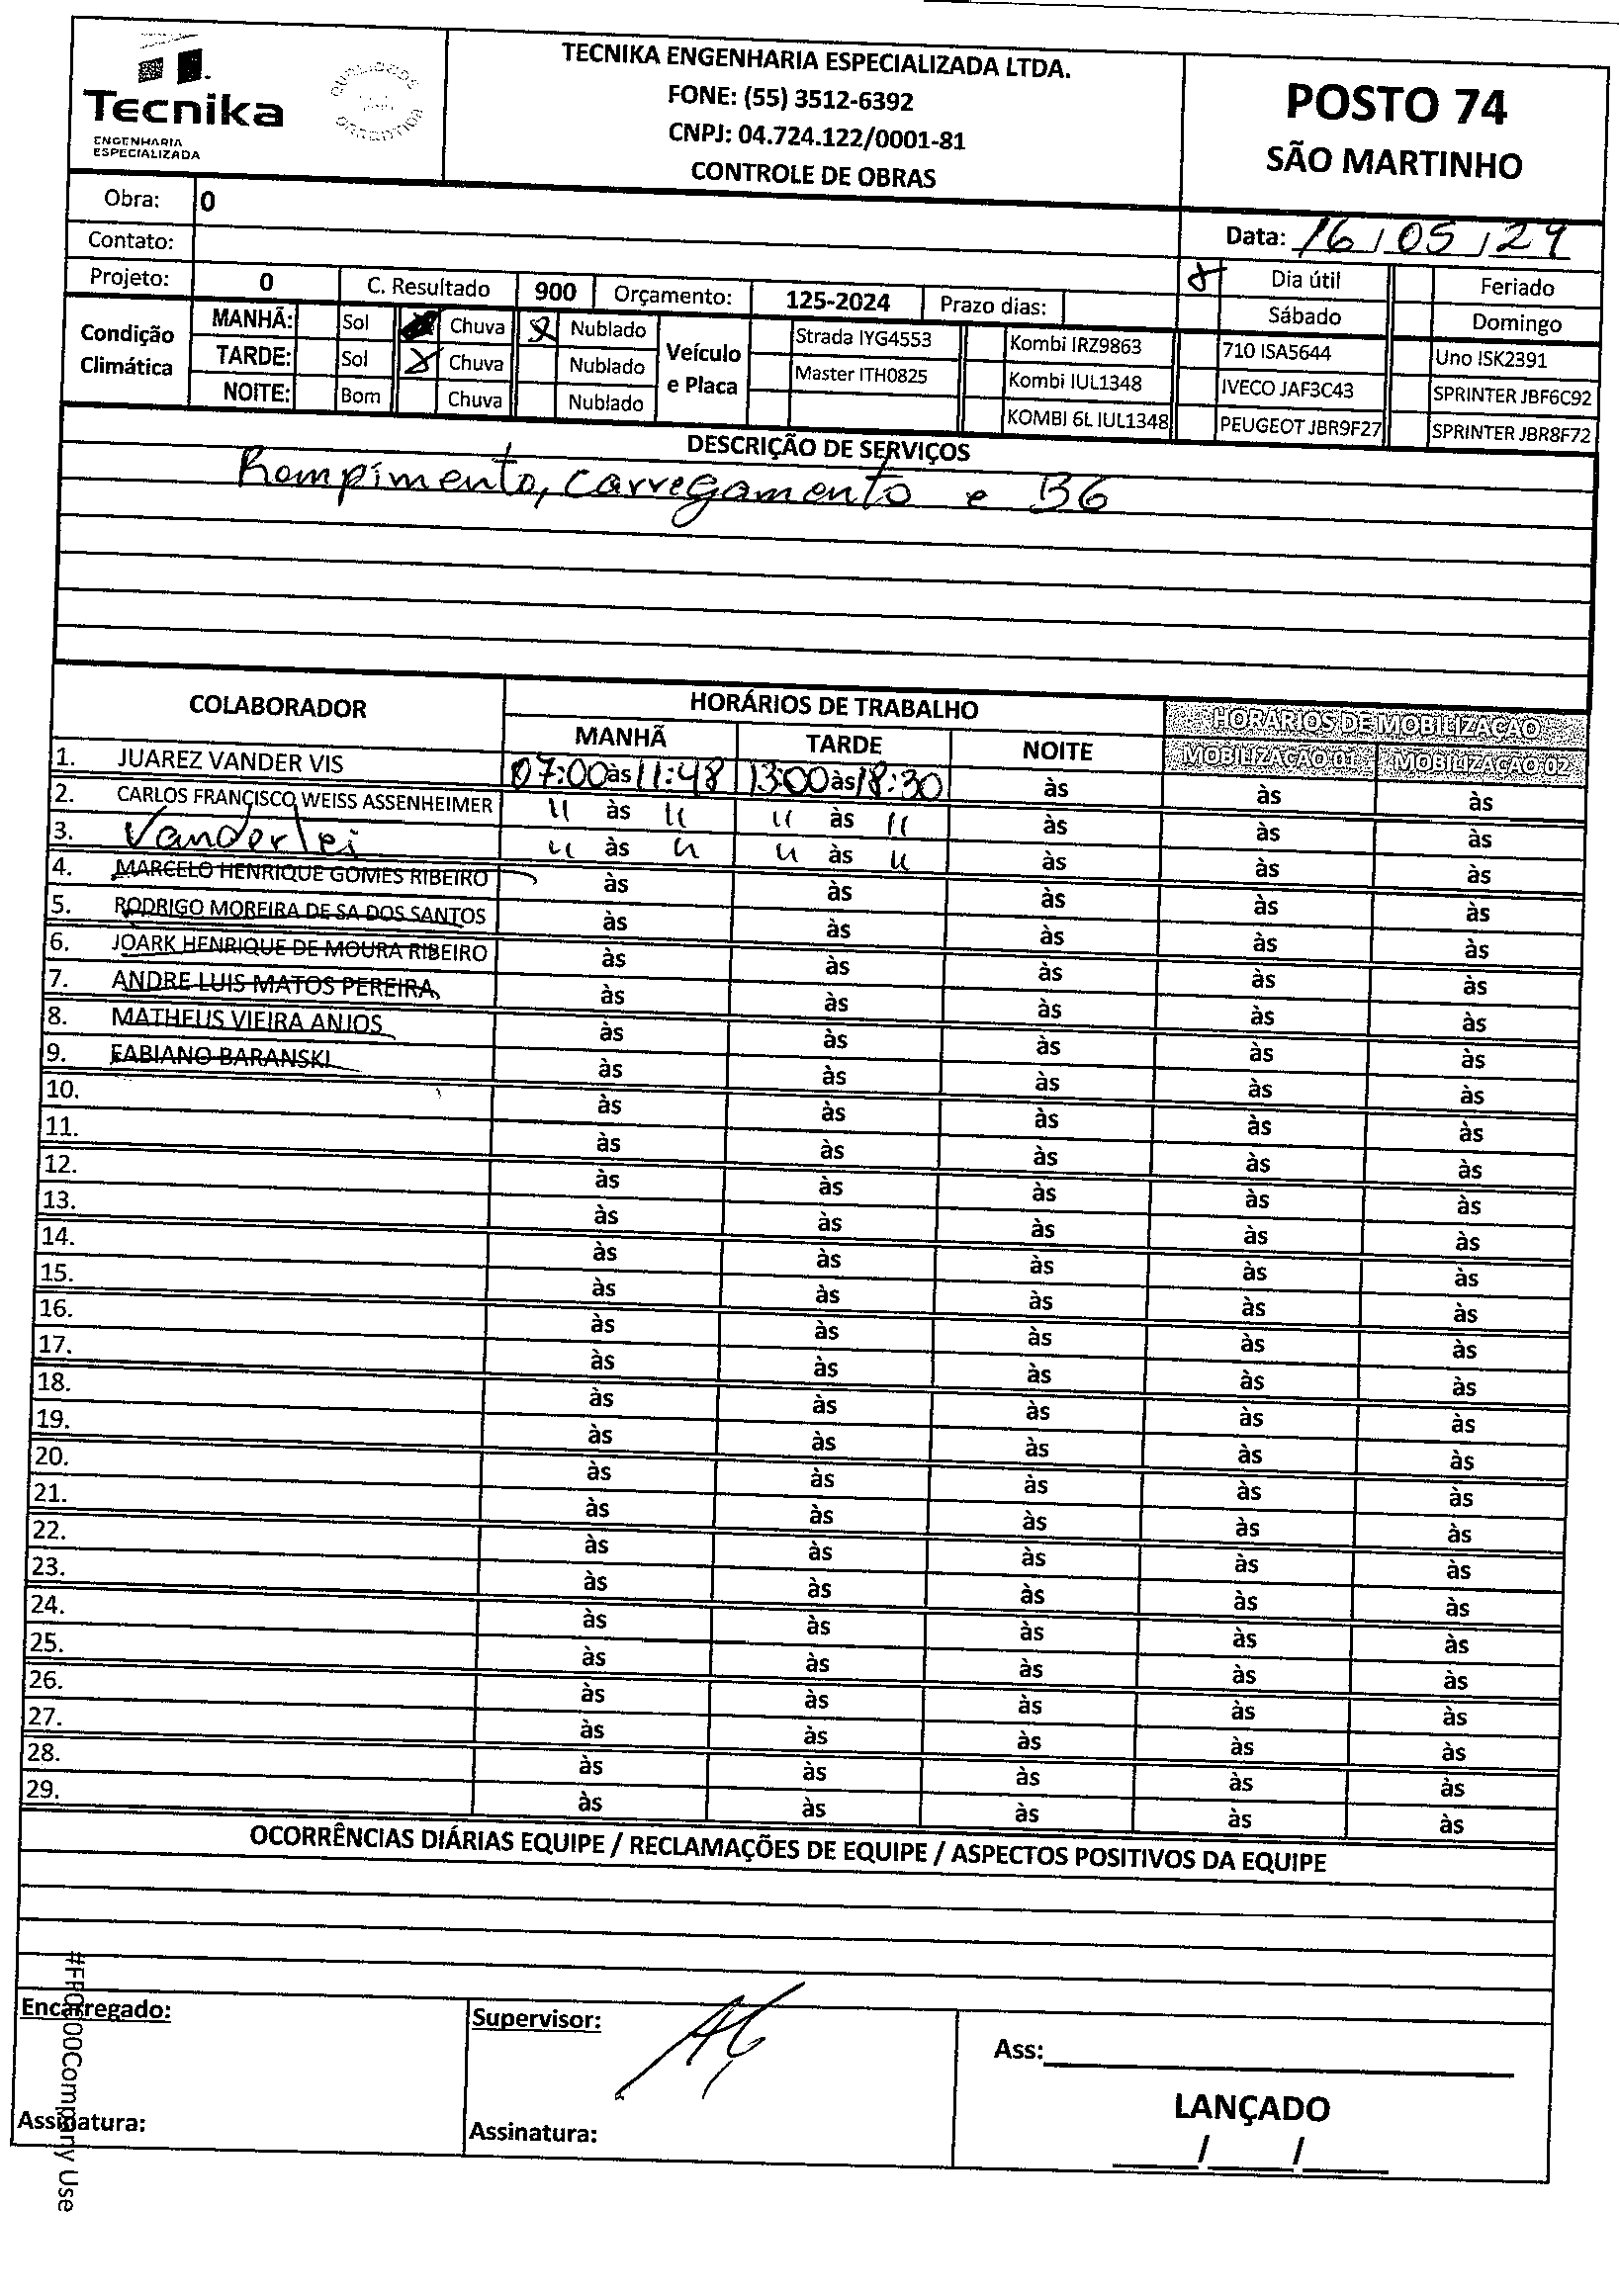 Tecnika
ENGENHARIA
ESPECIALIZADA
TECNIKA ENGENHARIA ESPECIALIZADA LTDA.
FONE: (55) 3512-6392
CNPJ: 04.724.122/0001-81
CONTROLE DE OBRAS
POSTO 74
SÃO MARTINHO
Obra: 0
Contato:
Data: 16/05/24
Projeto: 0 C. Resultado 900 Orçamento: 125-2024 Prazo dias:
Dia útil Feriado
Sábado Domingo
Condição Climática
MANHÃ: Sol Chuva Nublado
TARDE: Sol Chuva Nublado
NOITE: Bom Chuva Nublado
Veículo e Placa
Strada IYG4553 Kombi IRZ9863 710 ISA5644 Uno ISK2391
Master ITH0825 Kombi IUL1348 IVECO JAF3C43 SPRINTER JBF6C92
KOMBI 6L IUL1348 PEUGEOT JBR9F27 SPRINTER JBR8F72
DESCRIÇÃO DE SERVIÇOS
Rompimento, carregamento e B6
COLABORADOR HORÁRIOS DE TRABALHO HORÁRIOS DE MOBILIZAÇÃO
MANHÃ TARDE NOITE MOBILIZAÇÃO 01 MOBILIZAÇÃO 02
1. JUAREZ VANDER VIS 07:00 às 11:48 13:00 às 18:30 às às às
2. CARLOS FRANCISCO WEISS ASSENHEIMER " às " " às " às às às
3. Vanderlei " às " " às " às às às
4. MARCELO HENRIQUE GOMES RIBEIRO às às às às às
5. RODRIGO MOREIRA DE SA DOS SANTOS às às às às às
6. JOARK HENRIQUE DE MOURA RIBEIRO às às às às às
7. ANDRE LUIS MATOS PEREIRA às às às às às
8. MATHEUS VIEIRA ANJOS às às às às às
9. FABIANO BARANSKI às às às às às
10. às às às às às
11. às às às às às
12. às às às às às
13. às às às às às
14. às às às às às
15. às às às às às
16. às às às às às
17. às às às às às
18. às às às às às
19. às às às às às
20. às às às às às
21. às às às às às
22. às às às às às
23. às às às às às
24. às às às às às
25. às às às às às
26. às às às às às
27. às às às às às
28. às às às às às
29. às às às às às
OCORRÊNCIAS DIÁRIAS EQUIPE / RECLAMAÇÕES DE EQUIPE / ASPECTOS POSITIVOS DA EQUIPE
Encarregado:
Assinatura:
Supervisor:
Assinatura:
Ass:
LANÇADO
/ /
Company Use